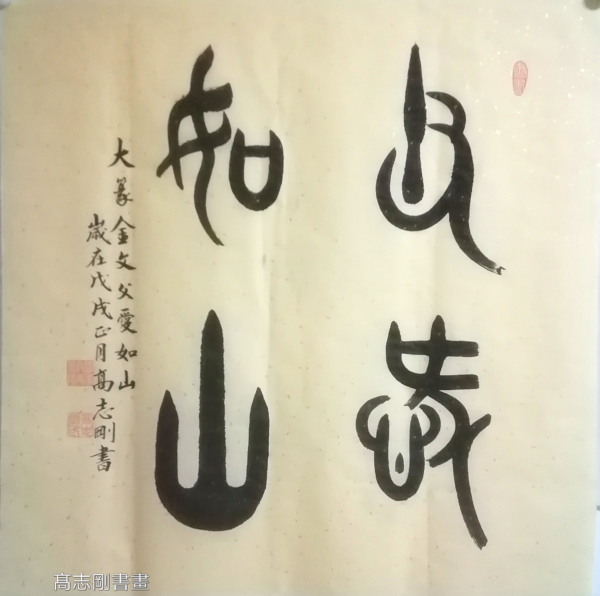 父愛
如山
大篆金文父愛如山
歲在戊戌正月高志剛書
髙志剛書畫